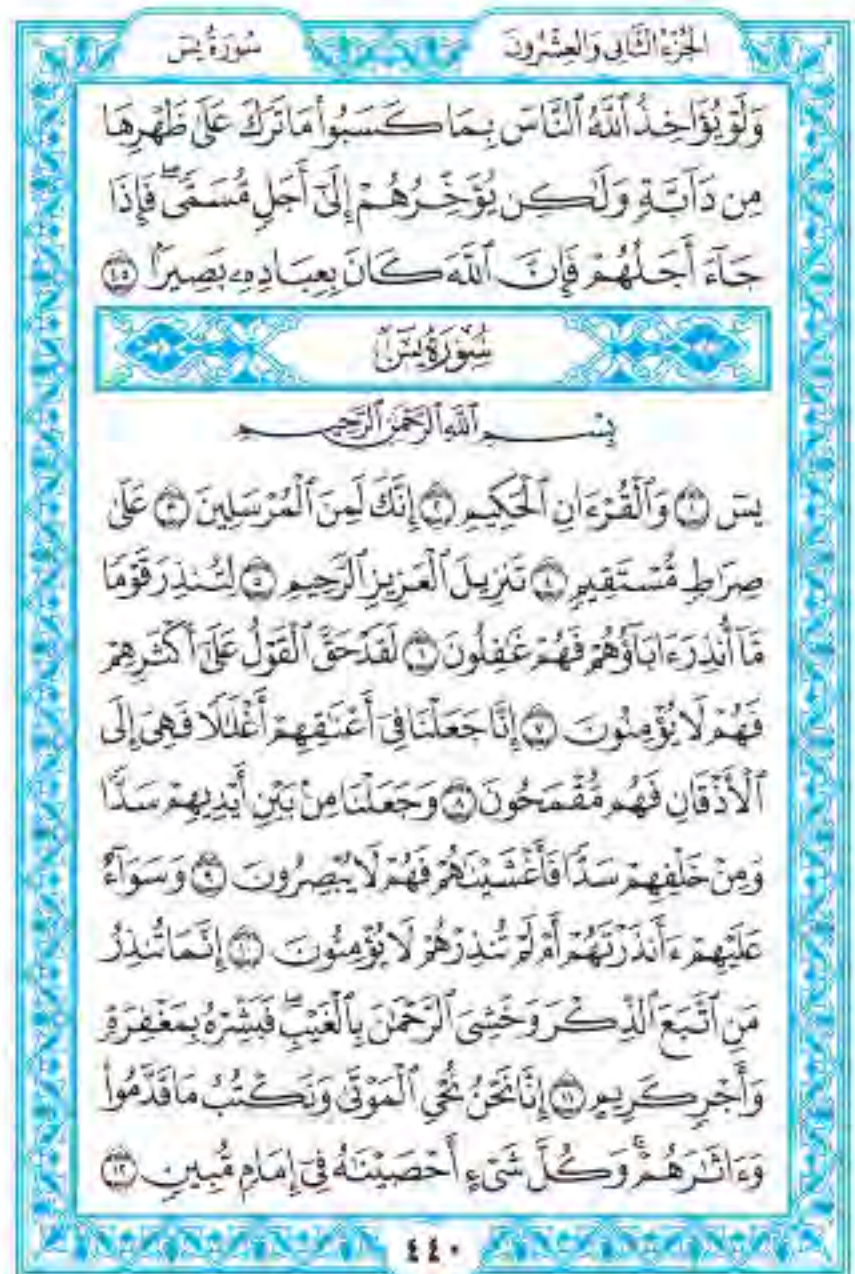 الجُزْءُ الثَّانِي وَالعِشْرُونَ سُورَةُ يسٓ
وَلَوْ يُؤَاخِذُ ٱللَّهُ ٱلنَّاسَ بِمَا كَسَبُواْ مَا تَرَكَ عَلَىٰ ظَهْرِهَا
مِن دَآبَّةٖ وَلَٰكِن يُؤَخِّرُهُمْ إِلَىٰٓ أَجَلٖ مُّسَمّٗىۖ فَإِذَا
جَآءَ أَجَلُهُمْ فَإِنَّ ٱللَّهَ كَانَ بِعِبَادِهِۦ بَصِيرَۢا ٤٥
سُورَةُ يسٓ
بِسْمِ ٱللَّهِ ٱلرَّحْمَٰنِ ٱلرَّحِيمِ
يسٓ ١ وَٱلْقُرْءَانِ ٱلْحَكِيمِ ٢ إِنَّكَ لَمِنَ ٱلْمُرْسَلِينَ ٣ عَلَىٰ
صِرَٰطٖ مُّسْتَقِيمٖ ٤ تَنزِيلَ ٱلْعَزِيزِ ٱلرَّحِيمِ ٥ لِتُنذِرَ قَوْمٗا
مَّآ أُنذِرَ ءَابَآؤُهُمْ فَهُمْ غَٰفِلُونَ ٦ لَقَدْ حَقَّ ٱلْقَوْلُ عَلَىٰٓ أَكْثَرِهِمْ
فَهُمْ لَا يُؤْمِنُونَ ٧ إِنَّا جَعَلْنَا فِىٓ أَعْنَٰقِهِمْ أَغْلَٰلٗا فَهِىَ إِلَى
ٱلْأَذْقَانِ فَهُم مُّقْمَحُونَ ٨ وَجَعَلْنَا مِنۢ بَيْنِ أَيْدِيهِمْ سَدّٗا
وَمِنْ خَلْفِهِمْ سَدّٗا فَأَغْشَيْنَٰهُمْ فَهُمْ لَا يُبْصِرُونَ ٩ وَسَوَآءٌ
عَلَيْهِمْ ءَأَنذَرْتَهُمْ أَمْ لَمْ تُنذِرْهُمْ لَا يُؤْمِنُونَ ١٠ إِنَّمَا تُنذِرُ
مَنِ ٱتَّبَعَ ٱلذِّكْرَ وَخَشِىَ ٱلرَّحْمَٰنَ بِٱلْغَيْبِۖ فَبَشِّرْهُ بِمَغْفِرَةٖ
وَأَجْرٖ كَرِيمٍ ١١ إِنَّا نَحْنُ نُحْىِ ٱلْمَوْتَىٰ وَنَكْتُبُ مَا قَدَّمُواْ
وَءَاثَٰرَهُمْۚ وَكُلَّ شَىْءٍ أَحْصَيْنَٰهُ فِىٓ إِمَامٖ مُّبِينٖ ١٢
٤٤٠